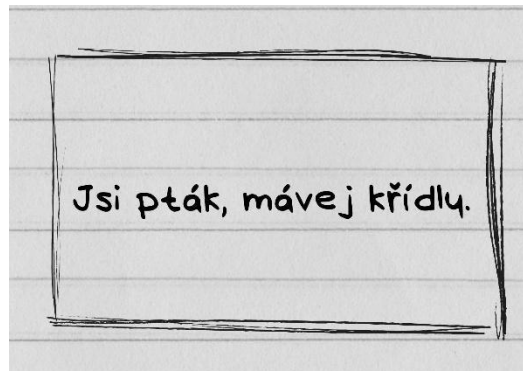 Jsi pták, mávej křídly.